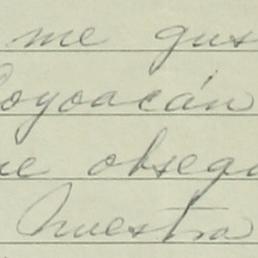 me gus
Coyoacán
ue obsequ
Nuestra